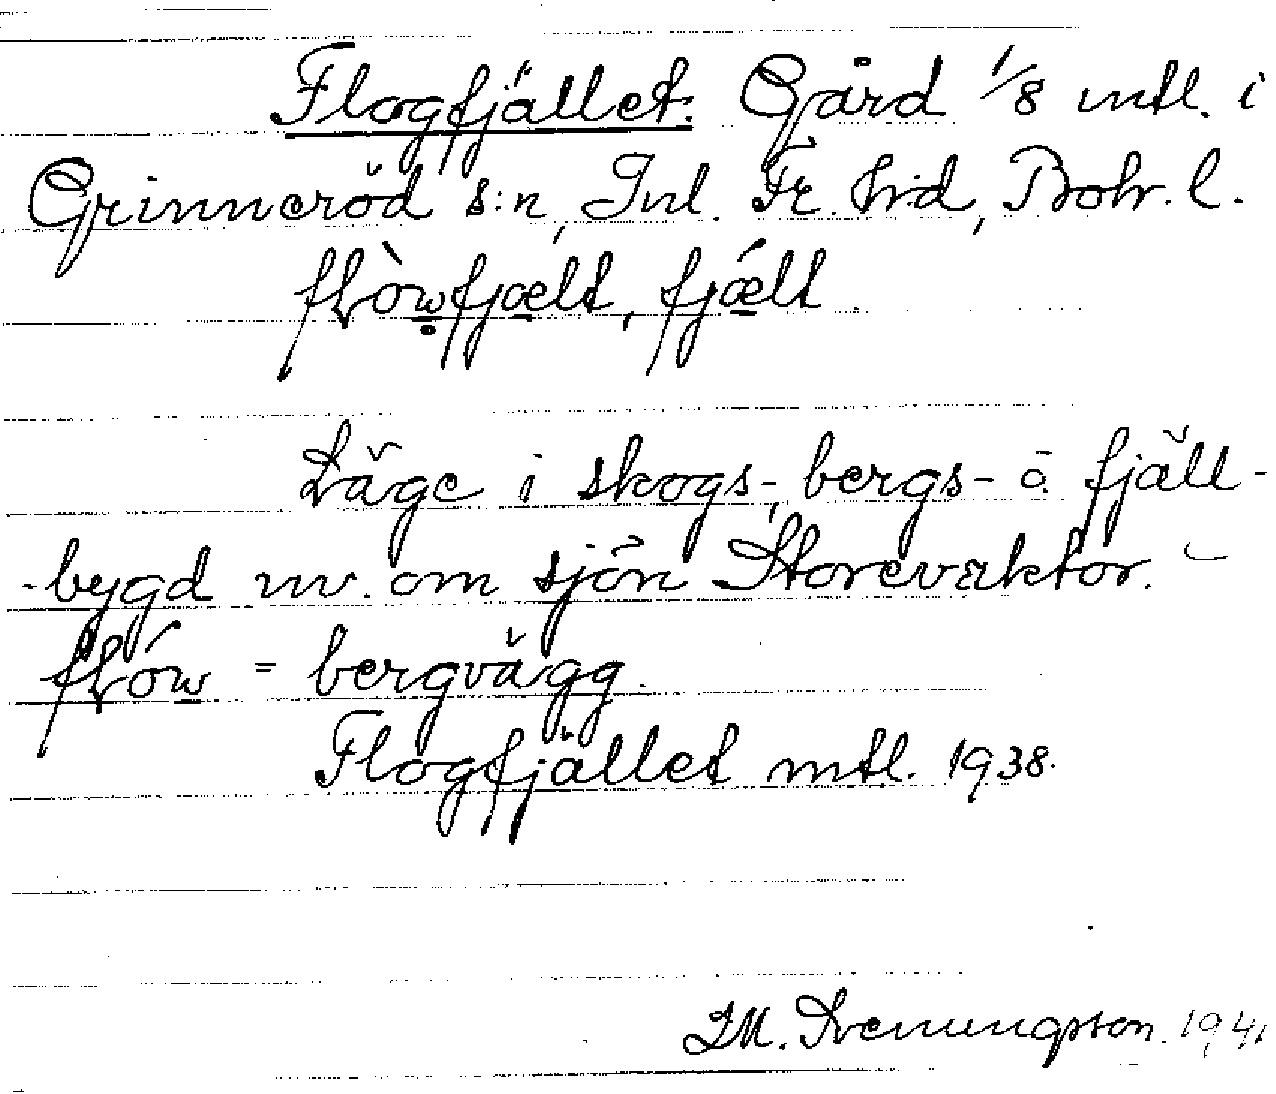 Flogfjället. Gård 1/8 mtl. i
Grinneröd s:n, Inl. Fr. hd, Boh. l.
flòwfjælt, fjǽlt.
Läge i skogs-, bergs- o. fjäll-
-bygd nv. om sjön Storeväktor. –
flów = bergvägg.
Flogfjället mtl. 1938.
I M. 1941